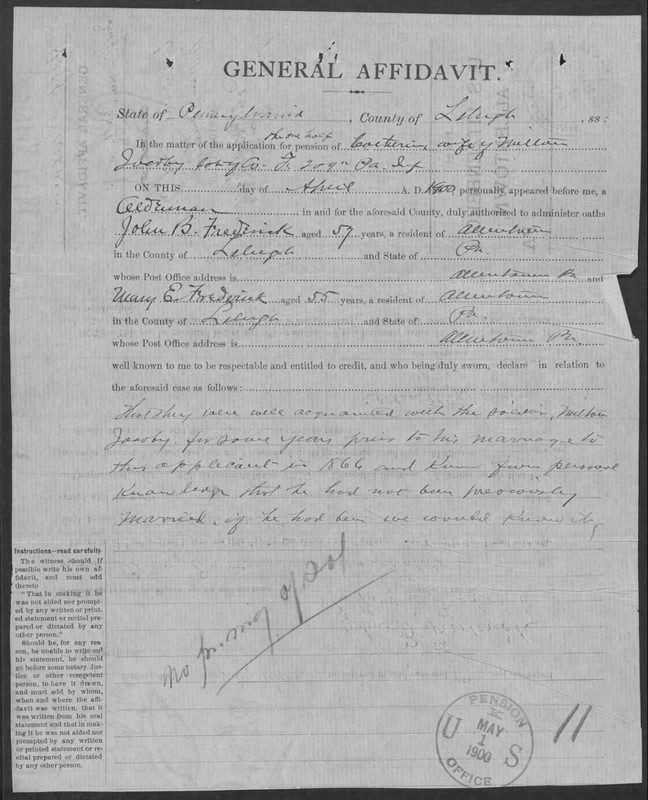 GENERAL AFFIDAVIT.
State of Pennsylvania, County of Lehigh, ss:
the one half
In the matter of the application for pension of Catherine wife of Milton
Co. F. Pa. Inf
ON THIS day of April A. D. 1900, personally appeared before me, a
Alderman in and for the aforesaid County, duly authorized to administer oaths
John B. Frederick aged 57 years, a resident of Allentown
in the County of Lehigh and State of Pa.
whose Post Office address is Allentown Pa and
Mary E. Frederick aged 55 years, a resident of Allentown
in the County of Lehigh and State of Pa.
whose Post Office address is Allentown Pa
well known to me to be respectable and entitled to credit, and who being duly sworn, declare in relation to
the aforesaid case as follows:
That they were well acquainted with the soldier, Milton
for some years prior to his marriage to
this applicant in 1866 and know from personal
knowledge that he had not been previously
married. if he had been we would know it,
Instructions—read carefully
The witness should if
possible write his own af-
fidavit, and must add
thereto
"That in making it he
was not aided nor prompt-
ed by any written or print-
ed statement or recital pre-
pared or dictated by any
other person."
Should he, for any rea
son, be unable to write out
his statement, he should
go before some notary, Jus-
tice or other competent
person, to have it drawn,
and must add by whom,
when and where the affi-
davit was written, that it
was written from his oral
statement and that in mak-
ing it he was not aided nor
prompted by any written
or printed statement or re-
cital prepared or dictated
by any other person.
no pr. mar of sol
PENSION
U MAY S
1
1900
OFFICE
11